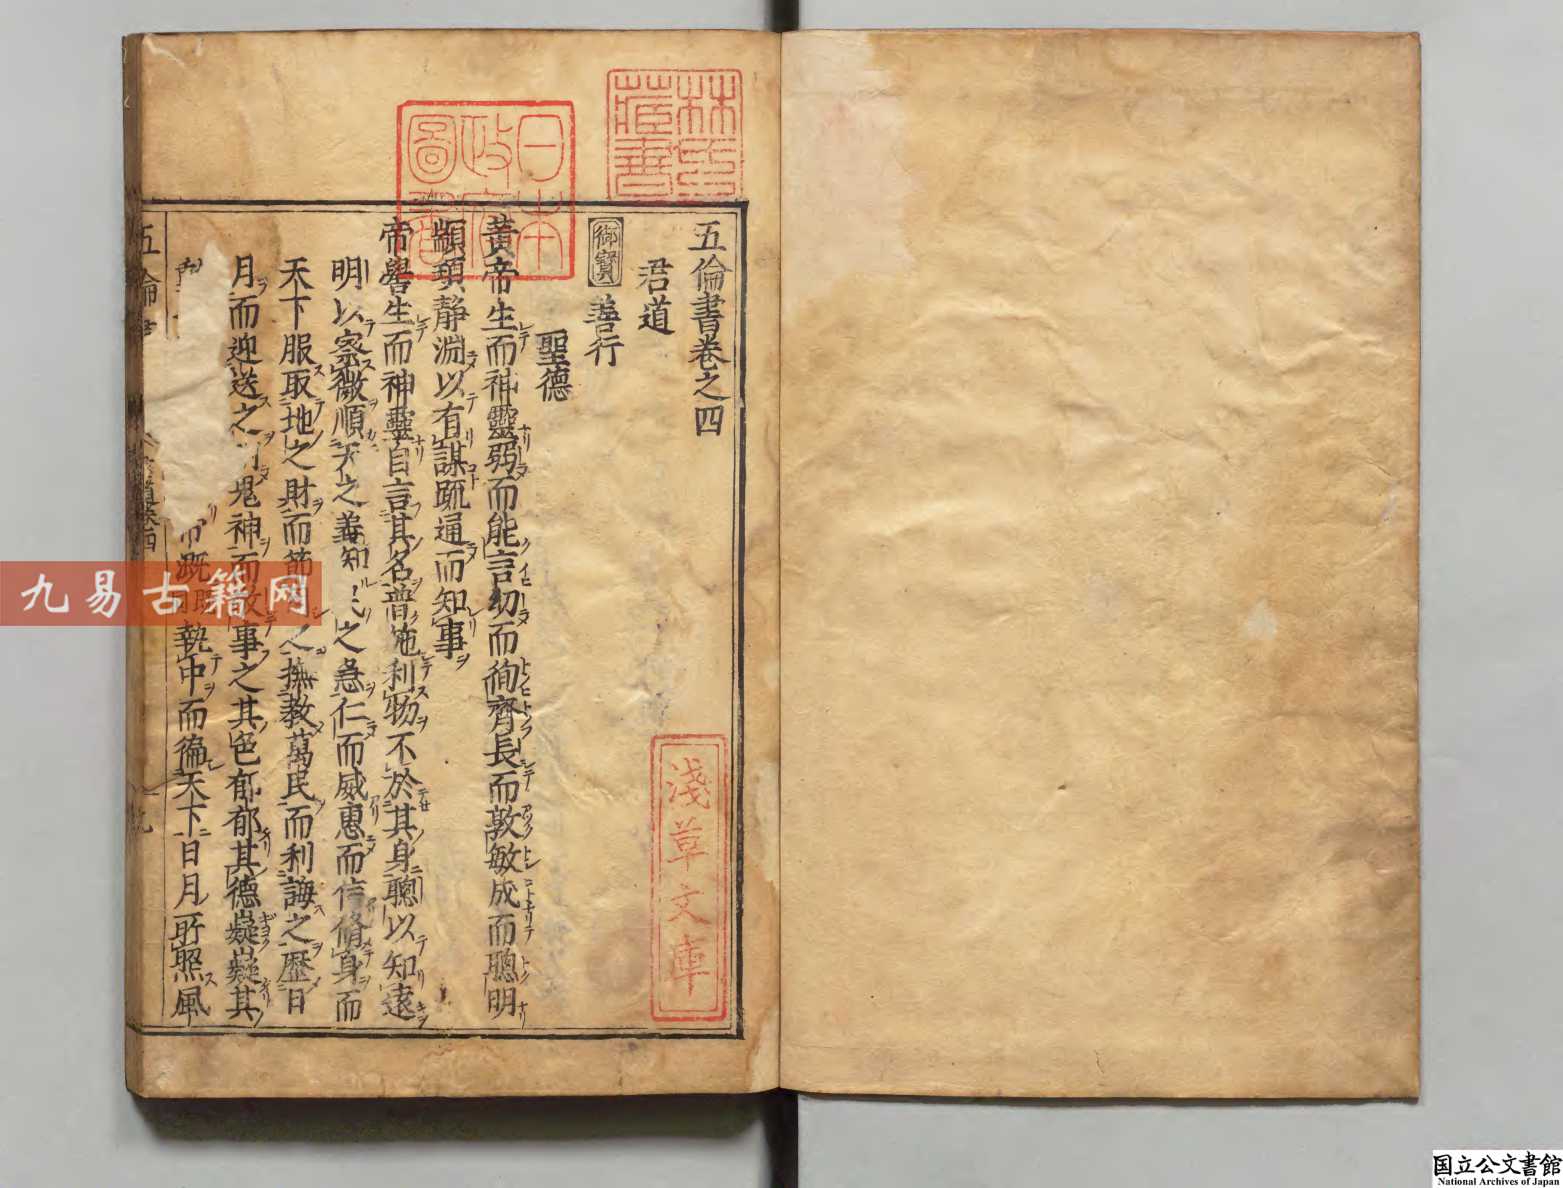 五倫書卷之四
君道
御寶 善行
聖德
黃帝生而神靈弱而能言幼而徇齊長而敦敏成而聰明
顓頊靜淵以有謀疏通而知事
帝嚳生而神靈自言其名普施利物不於其身聰以知遠
明以察微順天之義知 之急仁而威惠而信脩身而
天下服取地之財而節 之撫教萬民而利誨之歷日
月而迎送之 鬼神而 事之其色郁郁其德嶷嶷其
帝溉 執中而徧天下日月所照風
林氏藏書
日本政府圖書
淺草文庫
九易古籍网
国立公文書館
National Archives of Japan